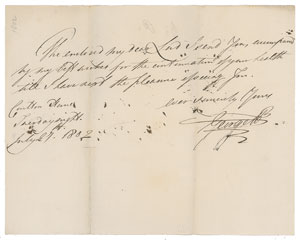 The enclosed my dear Lord I send You, accompanied
by my best wishes for the continuation of your health
till I have next the pleasure of seeing You.
ever sincerely Yours
Carlton House
Tuesday night
July 27. 180